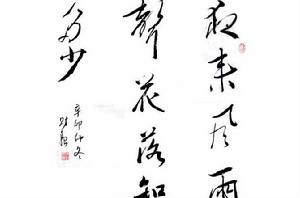 夜来风雨
聲花落知
多少
辛卯仲冬